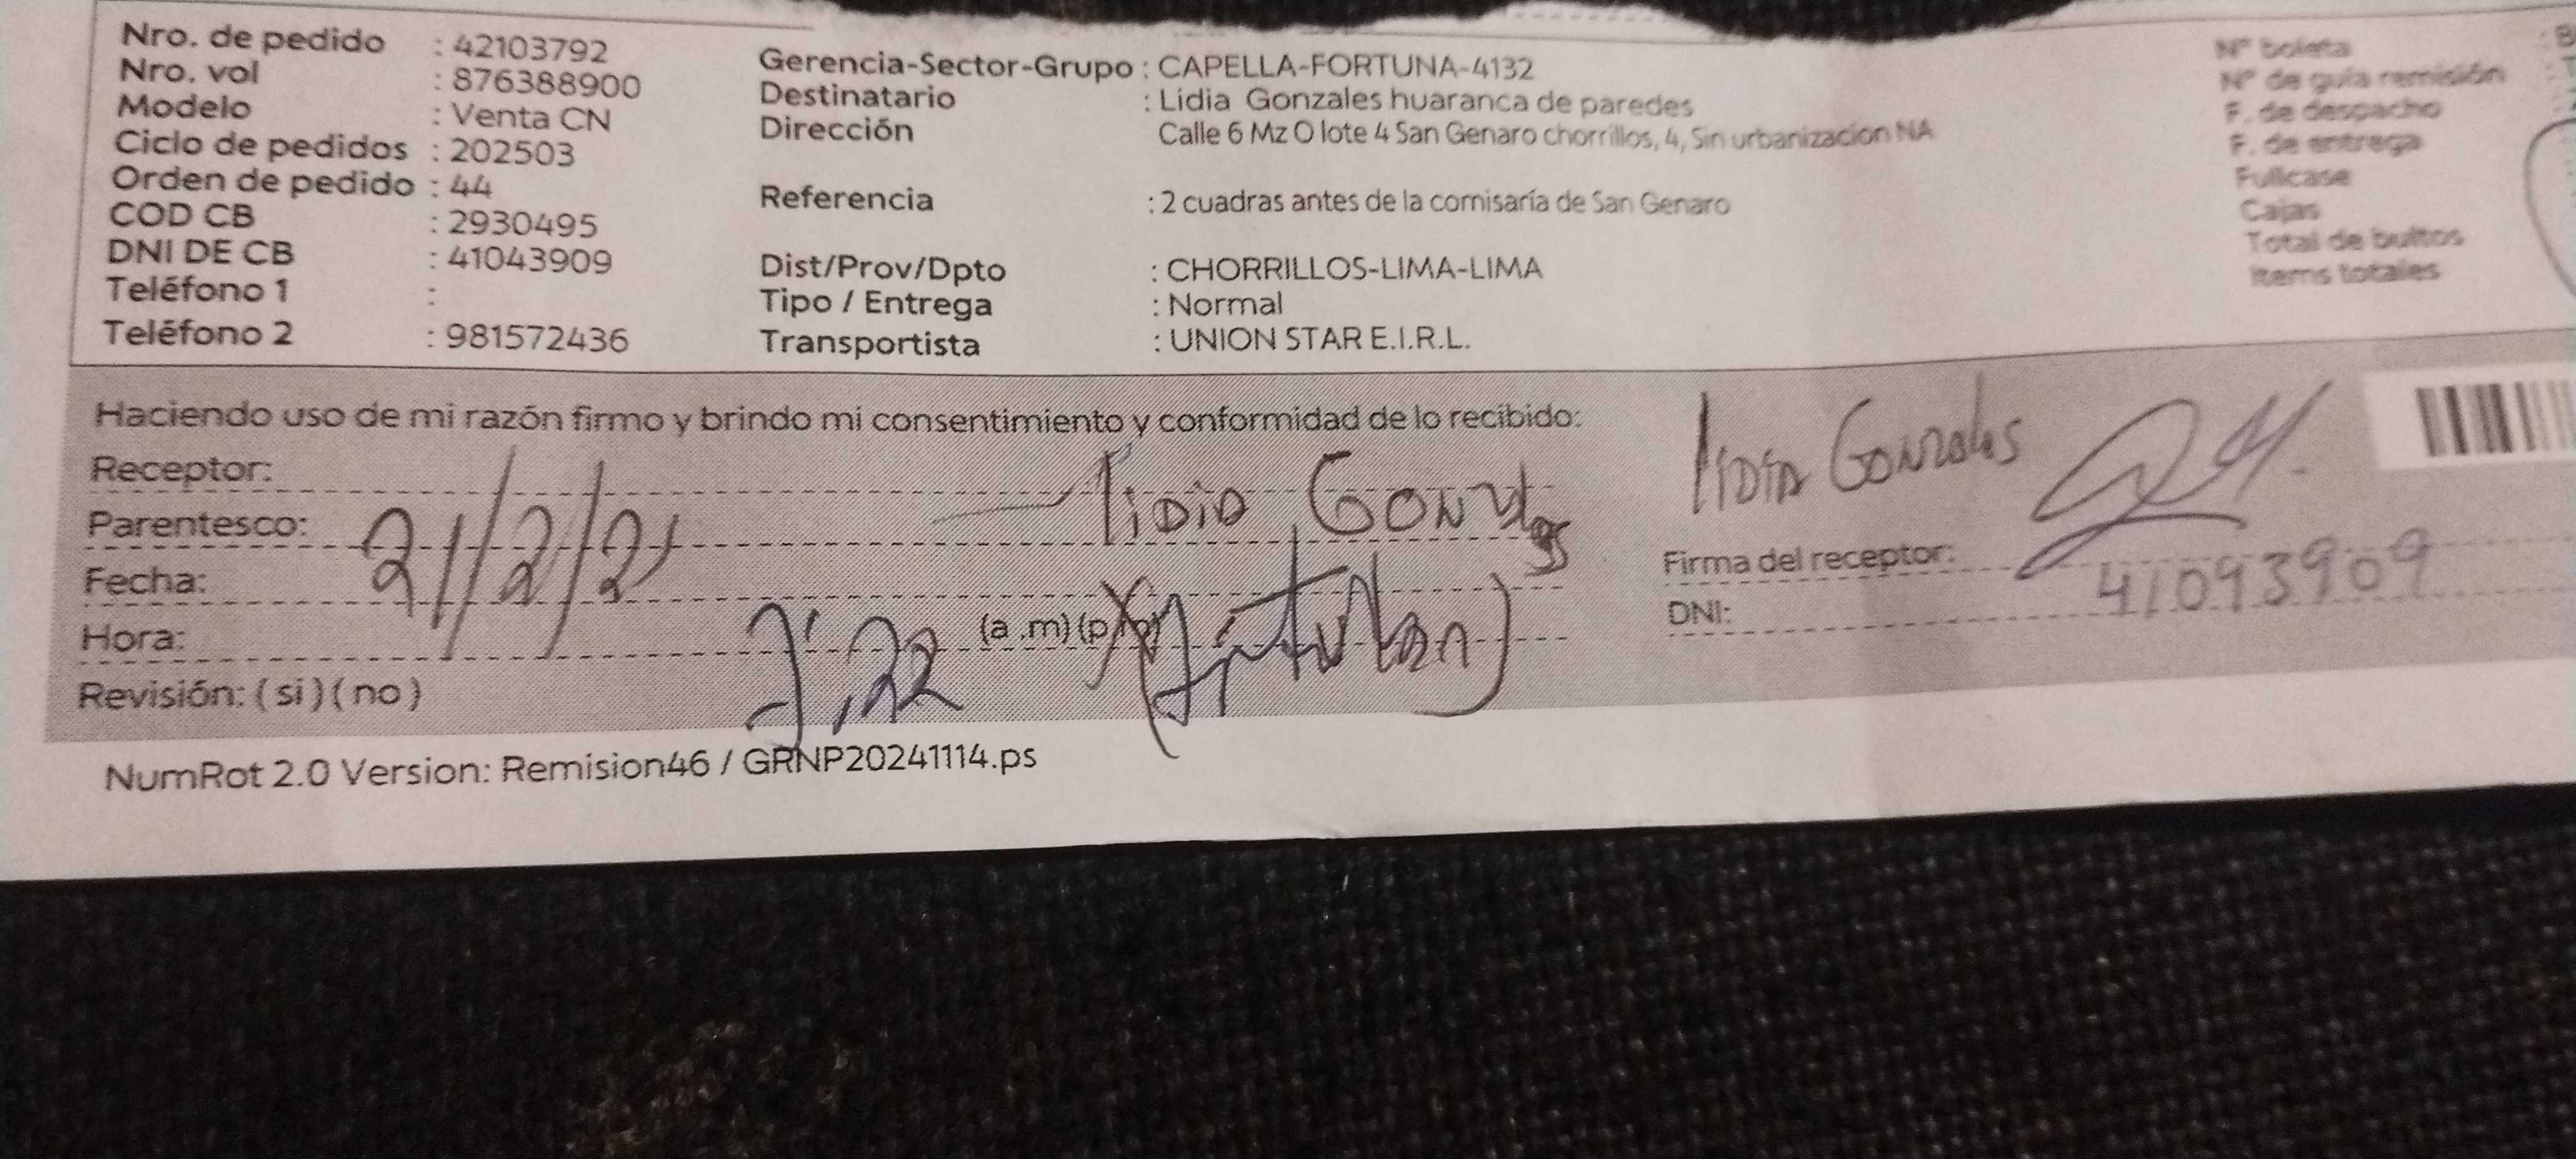 Nro. de pedido : 42103792
Nro. vol : 876388900
Modelo : Venta CN
Ciclo de pedidos : 202503
Orden de pedido : 44
COD CB : 2930495
DNI DE CB : 41043909
Teléfono 1 :
Teléfono 2 : 981572436
Gerencia-Sector-Grupo : CAPELLA-FORTUNA-4132
Destinatario : Lidia Gonzales huaranca de paredes
Dirección Calle 6 Mz O lote 4 San Genaro chorrillos, 4, Sin urbanizacion NA
Referencia : 2 cuadras antes de la comisaría de San Genaro
Dist/Prov/Dpto : CHORRILLOS-LIMA-LIMA
Tipo / Entrega : Normal
Transportista : UNION STAR E.I.R.L.
N° boleta
N° de guía remisión
F. de despacho
F. de entrega
Fullcase
Cajas
Total de bultos
Items totales
Haciendo uso de mi razón firmo y brindo mi consentimiento y conformidad de lo recibido:
Receptor: lidia
Parentesco:
Fecha: 21/2/25
Hora: (a .m)
(titular)
Revisión: ( si ) ( no )
lidia Gonzales
Firma del receptor:
DNI: 41093909
NumRot 2.0 Version: Remision46 / GRNP20241114.ps